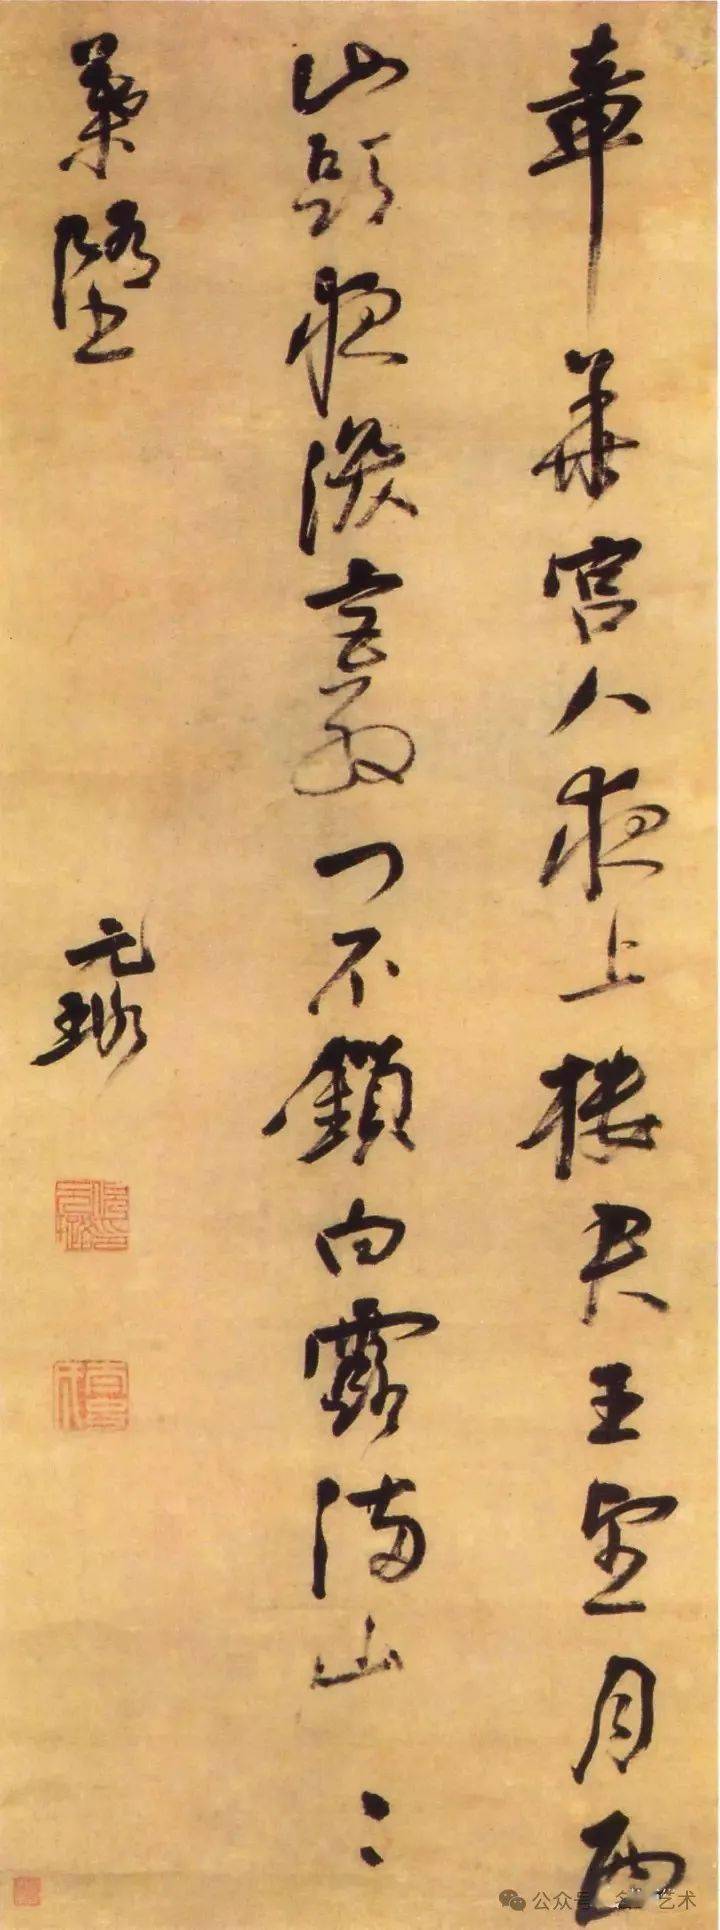 章華宮人夜上樓君王望月西
山頭夜深宮殿門不鎖白露滿山〻
葉墮
元璐
公众号 艺术